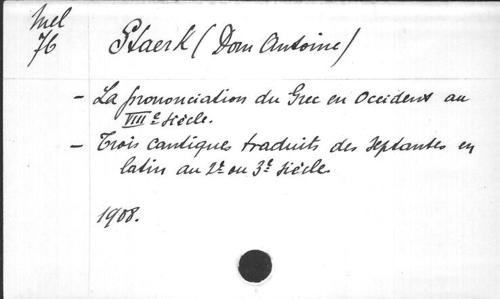 Mel
76
Staerk (Dom Antoine)
- La prononciation du Grec en Occident au
VIIIe siècle.
- Trois cantiques traduits des Septantes en
latin au 2e ou 3e siècle
1908.